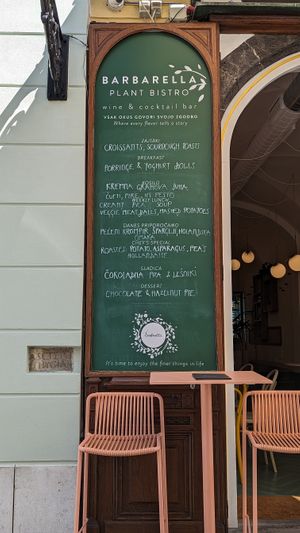 BARBARELLA
PLANT BISTRO
wine & cocktail bar
VSAK OKUS GOVORI SVOJO ZGODBO
Where every flavor tells a story
ZAJTRKI
CROISSANTS, SOURDOUGH TOASTI
BREAKFAST
PORRIDGE & YOGHURT BOLLS
KOSILO
KREMNA GRAHOVA JUHA
ČUFTI, PIRE IN PESTO
WEEKLY LUNCH
CREAMY PEA SOUP
VEGGIE MEATBALLS, MASHED POTATOES
DANES PRIPOROČAMO
PEČENI KROMPIR, ŠPARGLJI, HOLANDSKA
OMAKA
CHEF'S SPECIAL
ROASTED POTATO, ASPARAGUS, PEAS
HOLLANDAISE
SLADICA
ČOKOLADNA PITA Z LEŠNIKI
DESSERT
CHOCOLATE & HAZELNUT PIE
Barbarella
It's time to enjoy the finer things in life